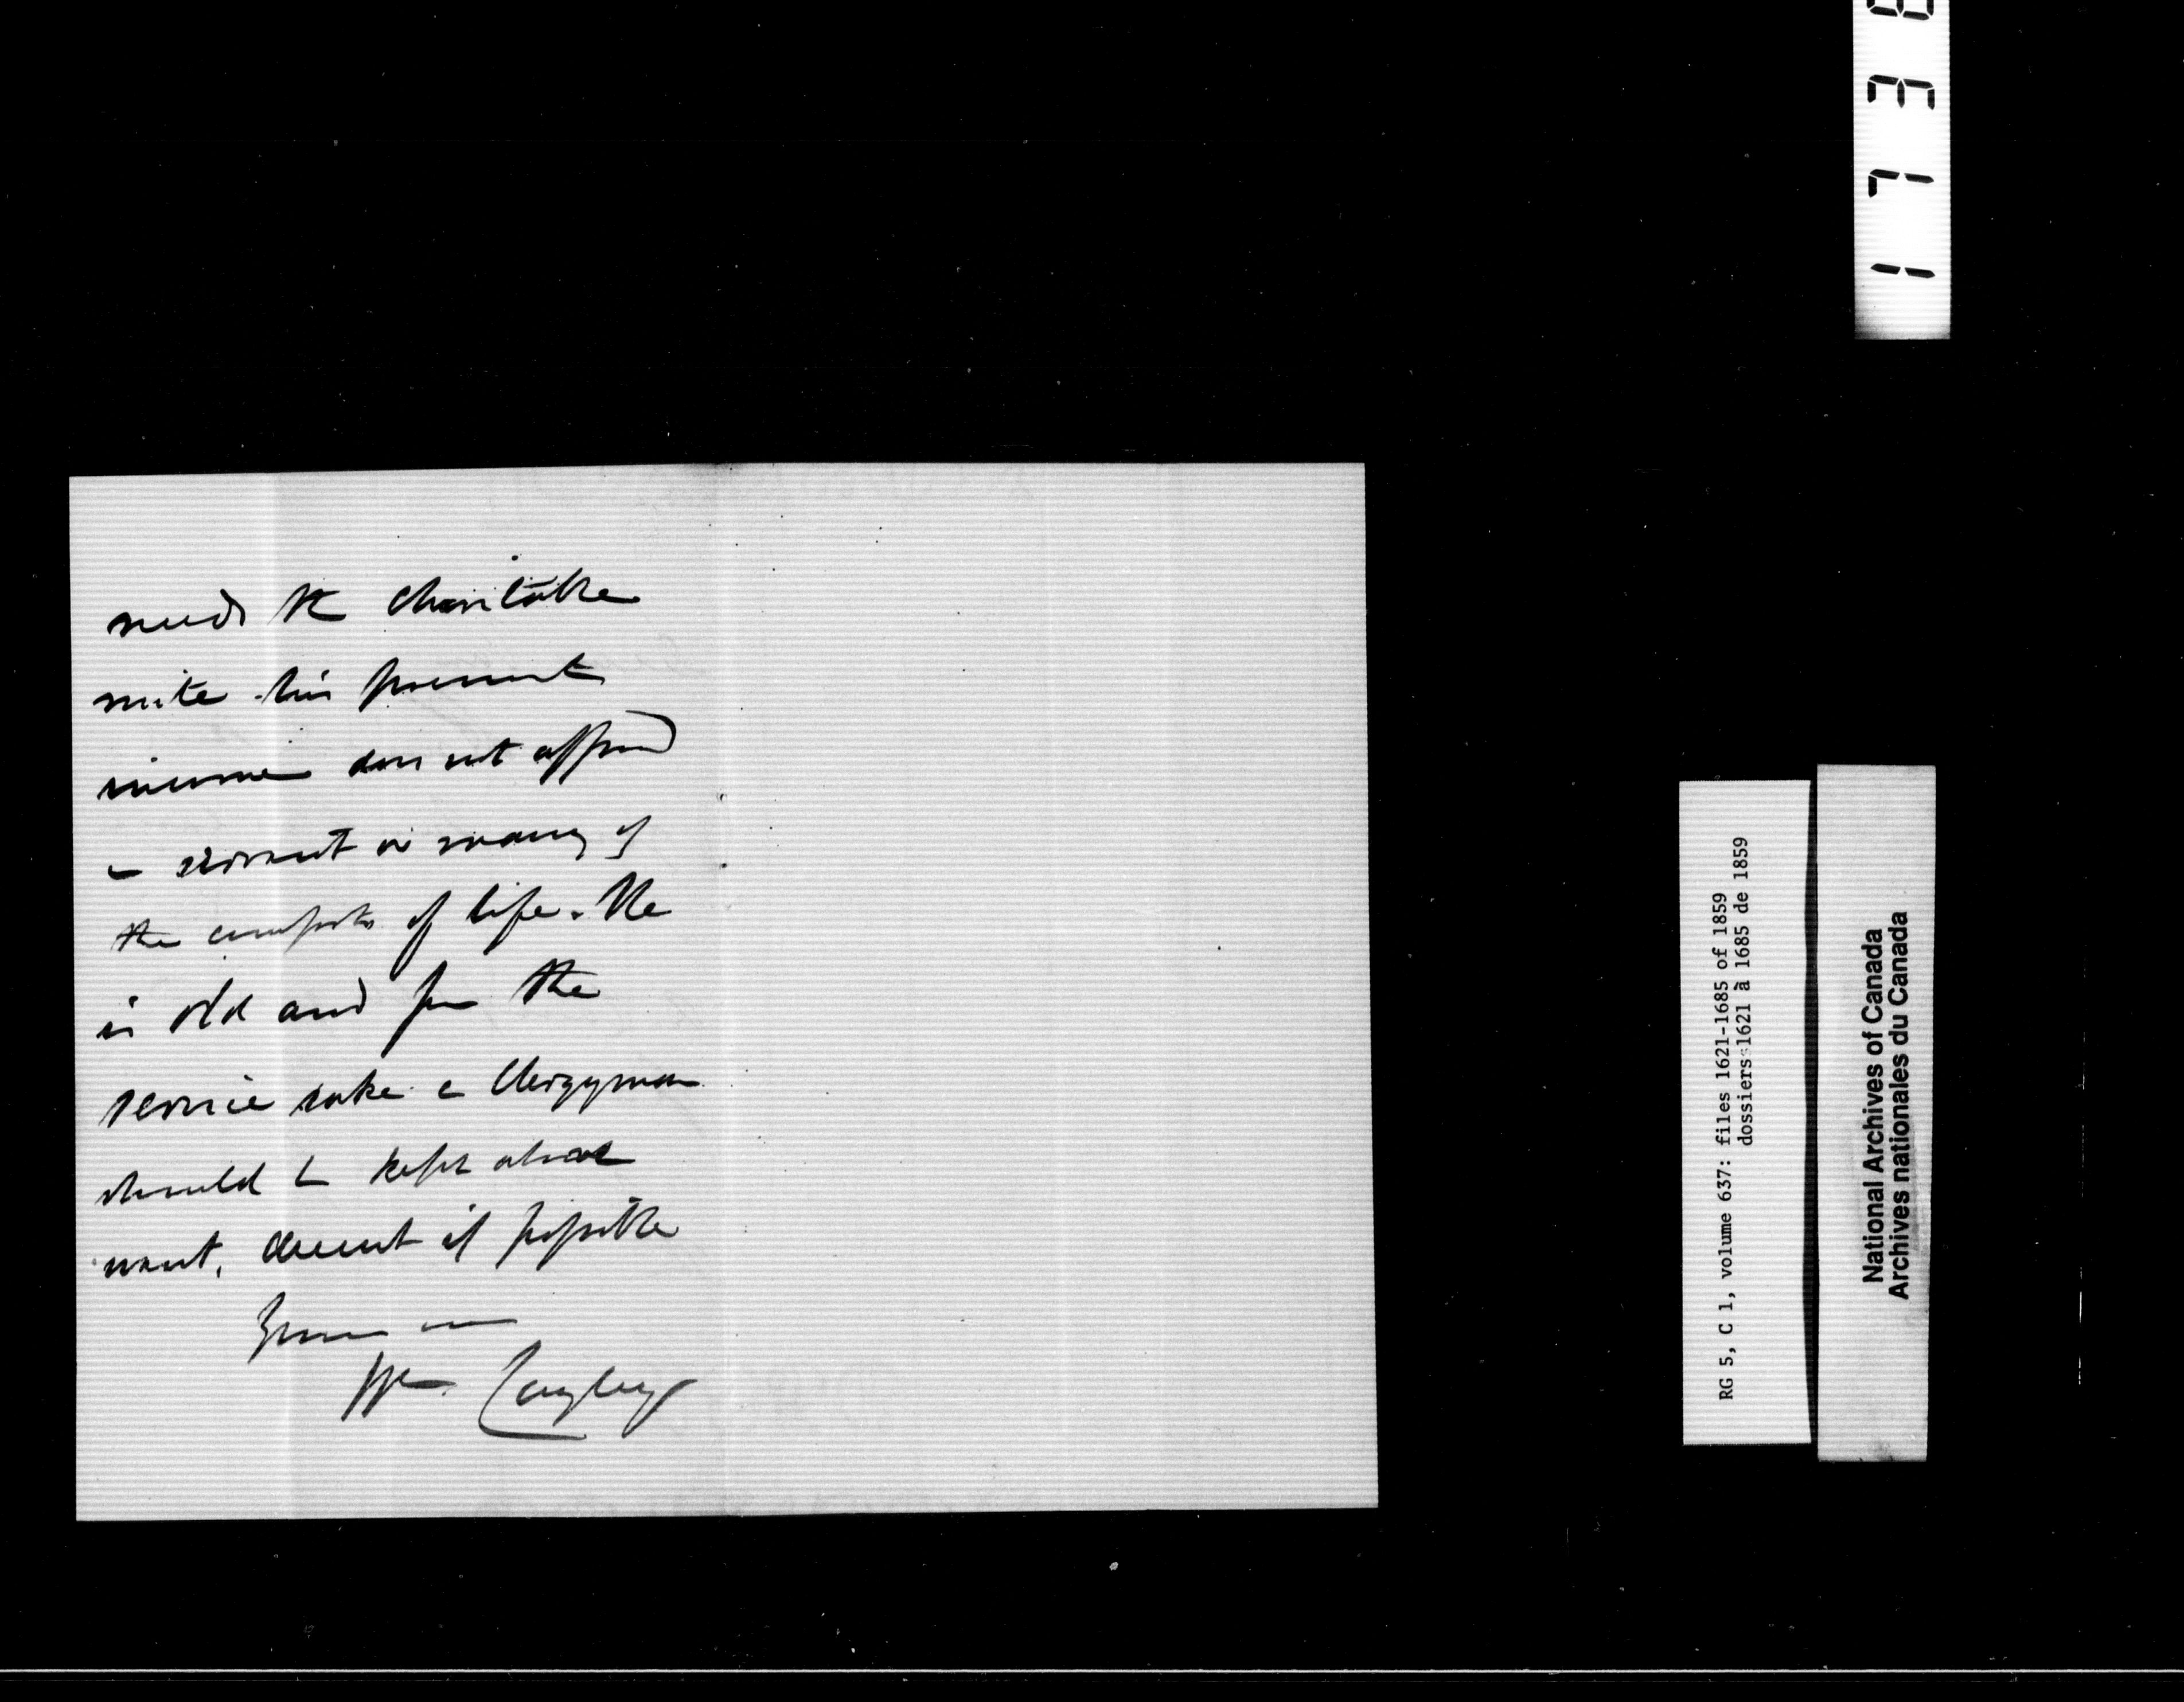 needs the charitable
mite his present
income does not afford
a servant or many of
the comforts of life. He
is old and for the
service sake a Clergyman
should be kept above
want, decent if possible
Yours
Wm. Cayley
RG 5, C 1, volume 637: files 1621-1685 of 1859
dossiers 1621 à 1685 de 1859
National Archives of Canada
Archives nationales du Canada
1 7 3